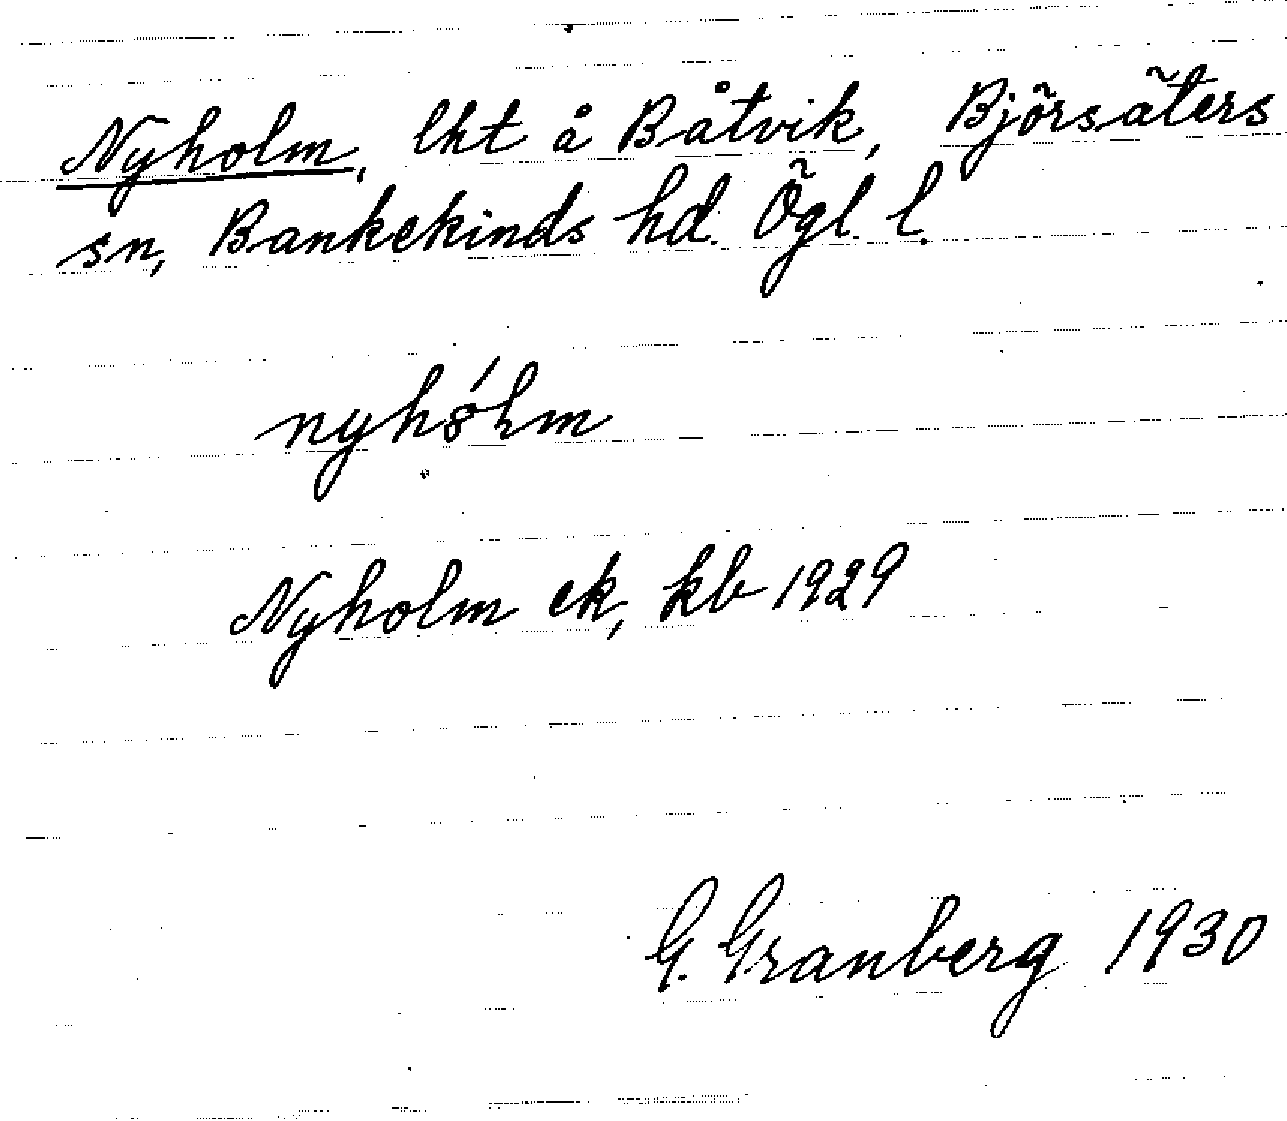 Nyholm, lht å Båtvik, Björsäters
sn, Bankekinds hd. Ögl. l.
nyhȣ́lm
Nyholm ek, kb 1929
G. Granberg 1930